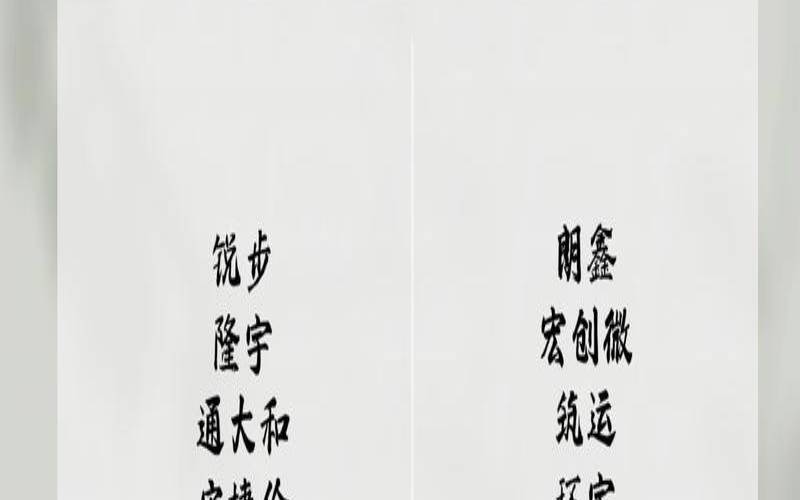 锐步
隆宇
通大和
朗鑫
宏创微
筑运